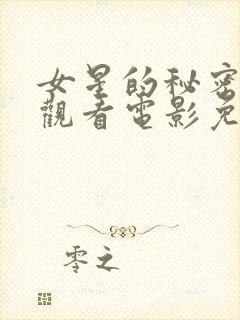 女星的秘密
觀看電影免
零之